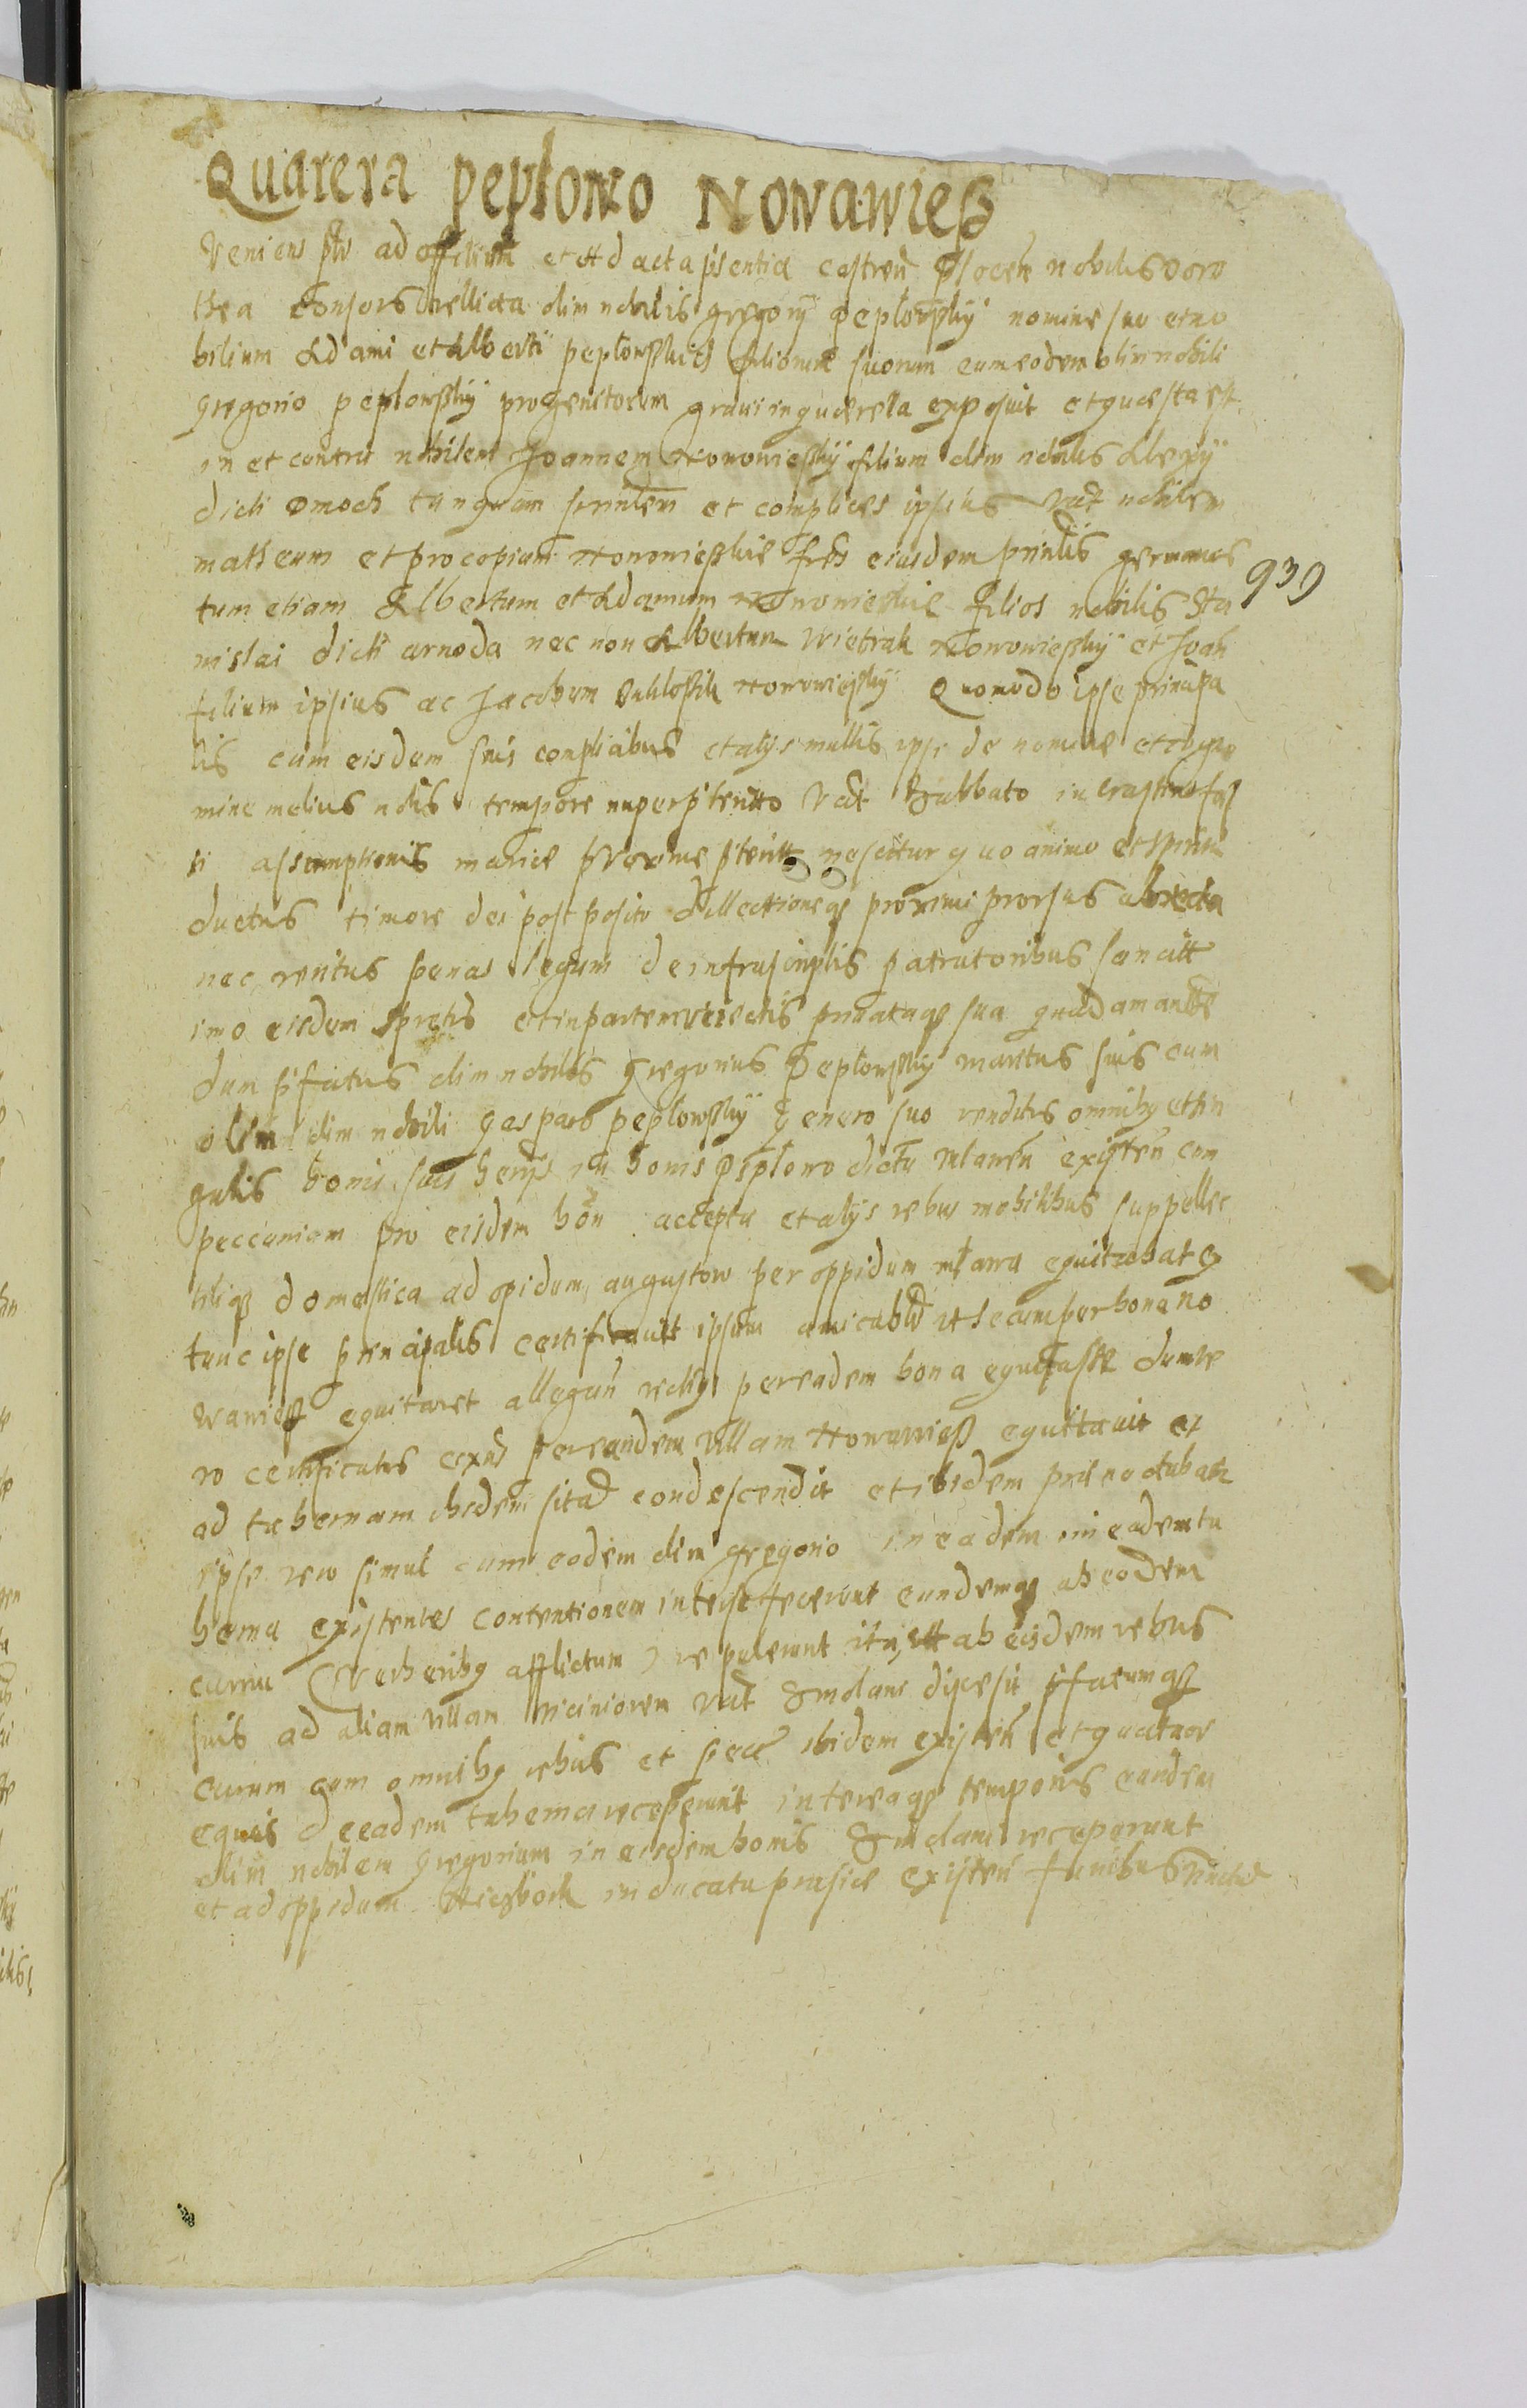 Quarera Peplowo Nowawiesß
Veniens ptr ad officium et Ad acta psentia castren Plocen nobilis Doro
thea Consors rellicta olim nobilis gregorÿ Peplowskÿ nomine suo et no
bilium Adami et Alberti peplowskich filiorum suorum cum eodem olim nobili
gregorio peplowskÿ progenitorum graui in querela exposuit et questa est
in et contra nobilem Joannem Nowowieskÿ filium olim nobilis Alexÿ
dicti omoch tanquam prinlem et complices ipsius vidt nobilem
matheum et procopium Nowowieskie fres eiusdem prinlis germanos
939
tum etiam Albertum et Adamum Nowowieskie filios nobilis Sta
nislai dicti arnoda nec non Albertum Wietrak Nowowieskÿ et Joan
filium ipsius ac Jacobum Nowowieskÿ Quomodo ipse principa
lis cum eisdem suis complicibus et alÿs multis ipsi de nomine et cogno
mine melius notis tempore nuper pterito vidt Sabbato in crastino fes
ti assumptionis mariæ proxime pterit nescitur quo animo et spiritu
ductus timore dei post posito dillectioneqz proximi prorsus abiecta
nec veritus penas legum de infrascriptis patratoribus sancitt
imo eisdem spretis et in partem reiectis priuataqz sua quadam
dum pfatus olim nobilis Gregorius Peplowskÿ maritus suus cum
olim olim nobili gaspare peplowskÿ genero suo venditis omnibz et sin
gulis bonis suis in bonis Peplowo dictu Mlawen existen cum
peccuniam pro eisdem bon accepta et alÿs rebus mobilibus suppellec
tiliqz domestica ad opidum augustow per oppidum mlawa equitabat ex
tunc ipse principalis certificauit ipsum amicabiliter ut secum per bona No
wawiesß equitaret allegan per eadem bona equitasse dum ve
ro certificatus per eandem villam Nowawiesß equitauit et
ad tabernam ibidem sitam condescendit et ibidem pernoctabat
ipse vero simul cum eodem olim gregorio in eadem in eadem ta
berna existentes contentionem inter se fecerunt eundemqz ab eodem
curru (verberibz afflictum) repulerunt ita, utt ab eisdem rebus
suis ad aliam villam viciniorem vidt Smolani discesit pfatumqz
currum cum omnibz rebus et pecc ibidem existen et quatuor
equis de eadem taberna receperunt intereaqz temporis eundem
olim nobilem Gregorium in eisdem bonis Smolani receperunt
et ad oppidum in ducatu prusiæ existen funibus